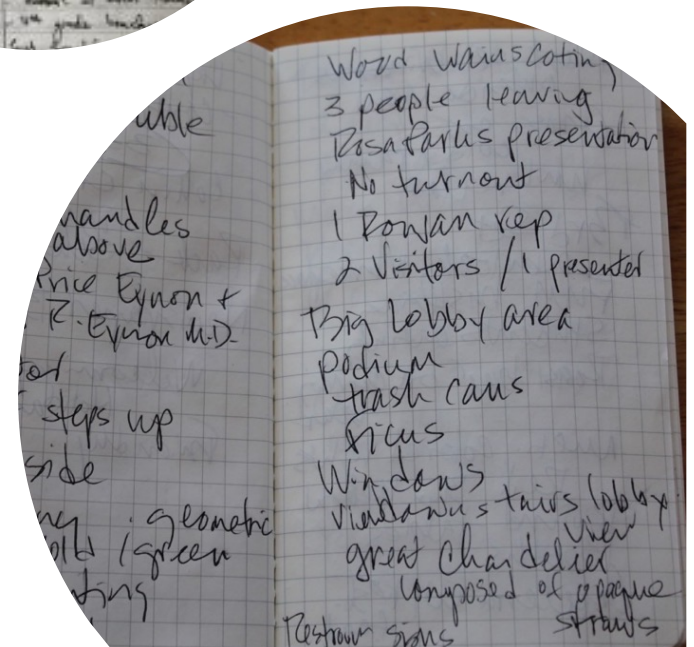 uble
handles
above
Price Eynon +
R. Eynon M.D.
steps up
side
geometric
/green
ting
Wood Wainscoting
3 people leaving
Rosa Parks presentation
No turnout
1 Rowan rep
2 Visitors / 1 presenter
Big lobby area
podium
trash cans
ficus
Windows
stairs lobby
view
great Chandelier
composed of opaque
straws
Restroom signs